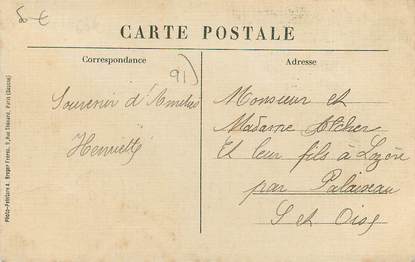 50 €
CARTE POSTALE
Correspondance
Adresse
91)
Souvenir d'Amitiés
Henriette
Monsieur et
Madame
Et leur fils à Lozère
par Palaiseau
S et Oise
Photo-Peinture A. Breger Frères, 9, Rue Thénard, Paris